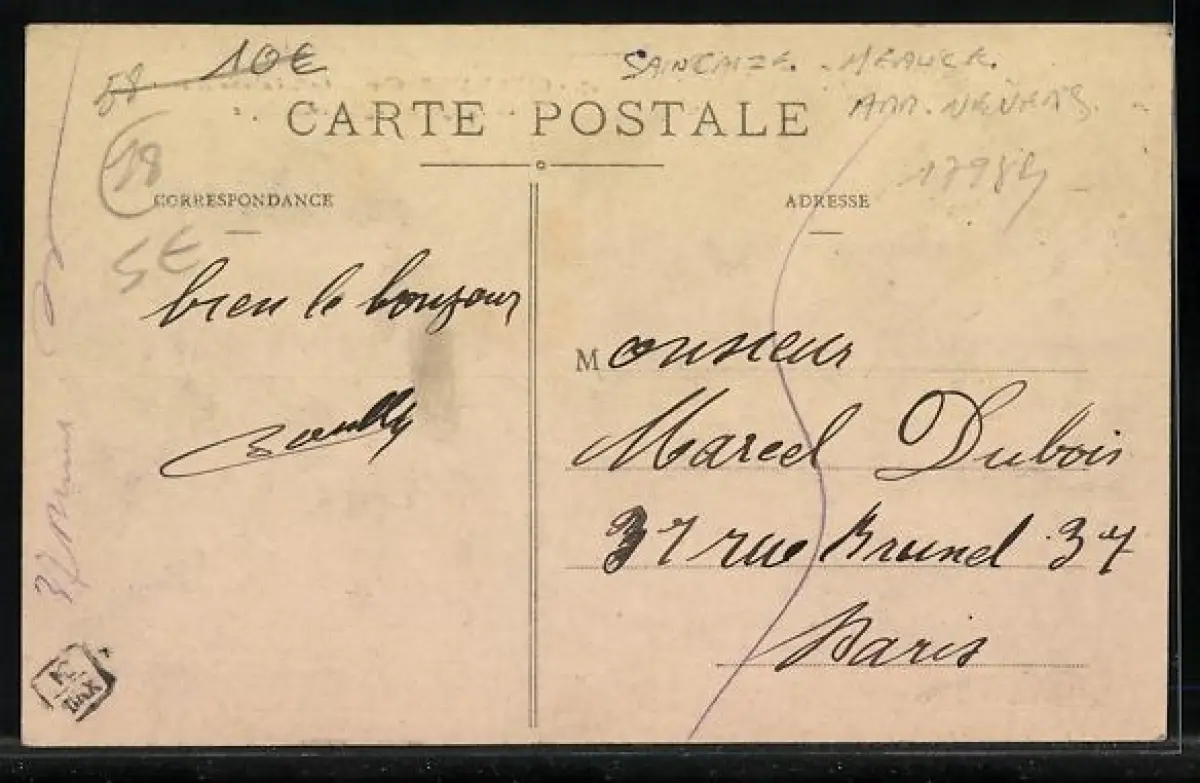 58 10€
SAINCAIZE - MEAUCE.
ARR. NEVERS.
CARTE POSTALE
17984
58
CORRESPONDANCE
ADRESSE
5€
bien le bonjour
Monsieur
Marcel Dubois
37 rue Brunel 37
Paris
DAX